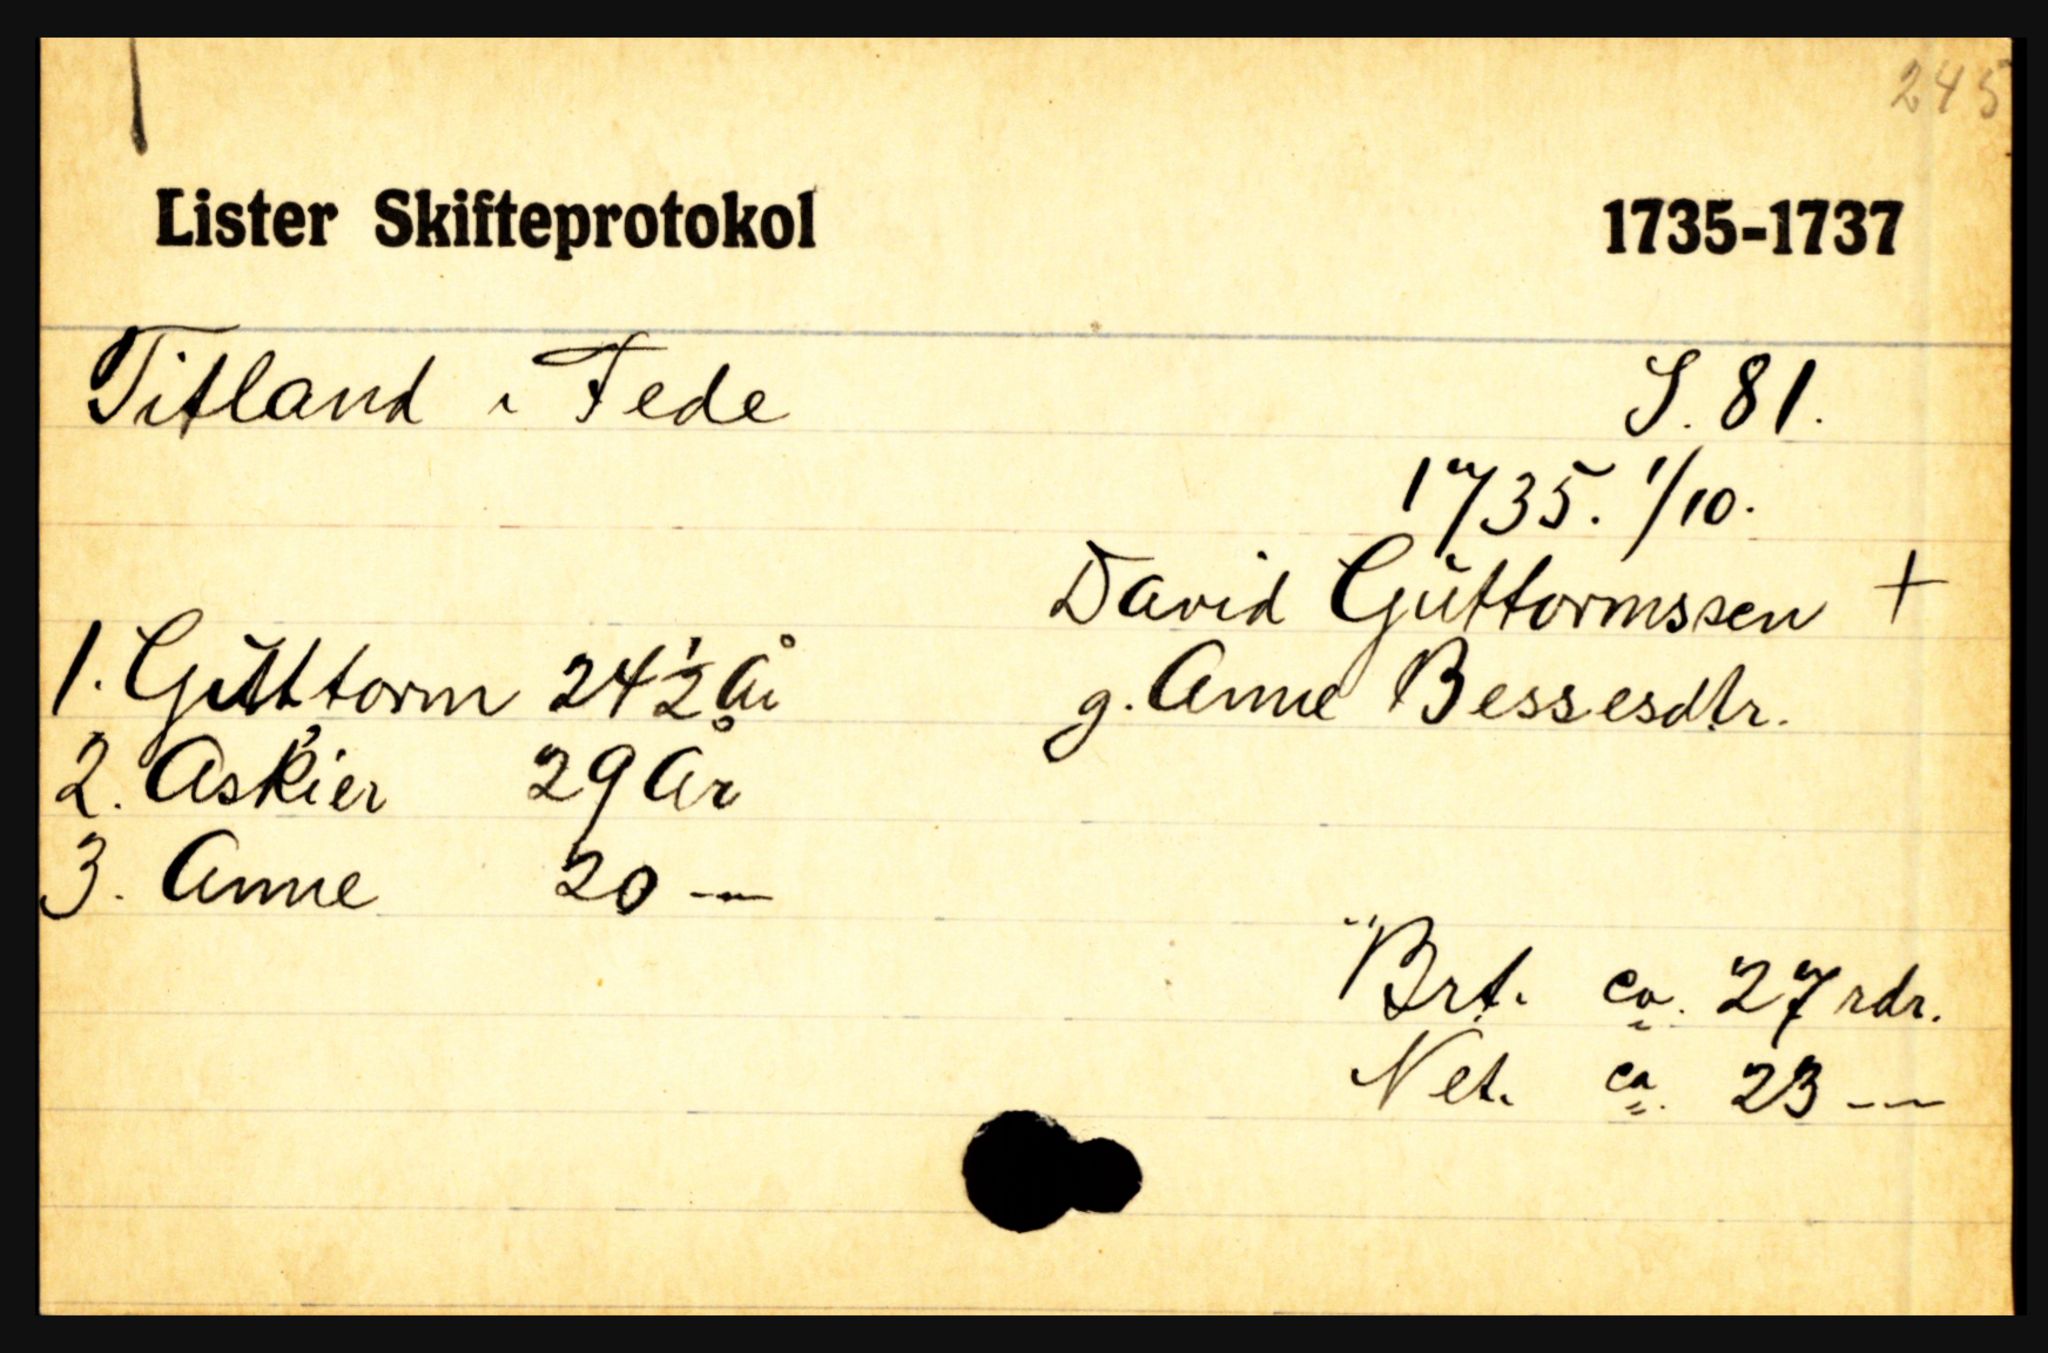 245
Lister Skifteprotokol 1735-1737
Titland i Fede S. 81.
1735. 1/10.
David Guttormssen +
1. Guttorm 24 1/2 År g. Anne Bessesdtr.
2. Askier 29 År
3. Anne 20 —
Brt. ca. 27 rdr.
Net. ca. 23 —